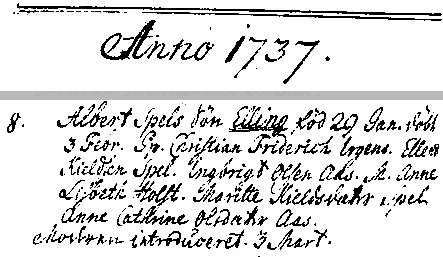 Anno 1737.
8. Albert Spels Sön Elling föd 29 Jan. döbt
3 Febr. Gv. Christian Friderich Irgens. Ellen
Kieldsen Spel. Ingbrigt Olsen Aas. M. Anne
Lisbeth Holst. Maritte Kieldsdatr Spel
Anne Cathrine Olsdatr Aas.
Modren introduceret. 3 Mart.